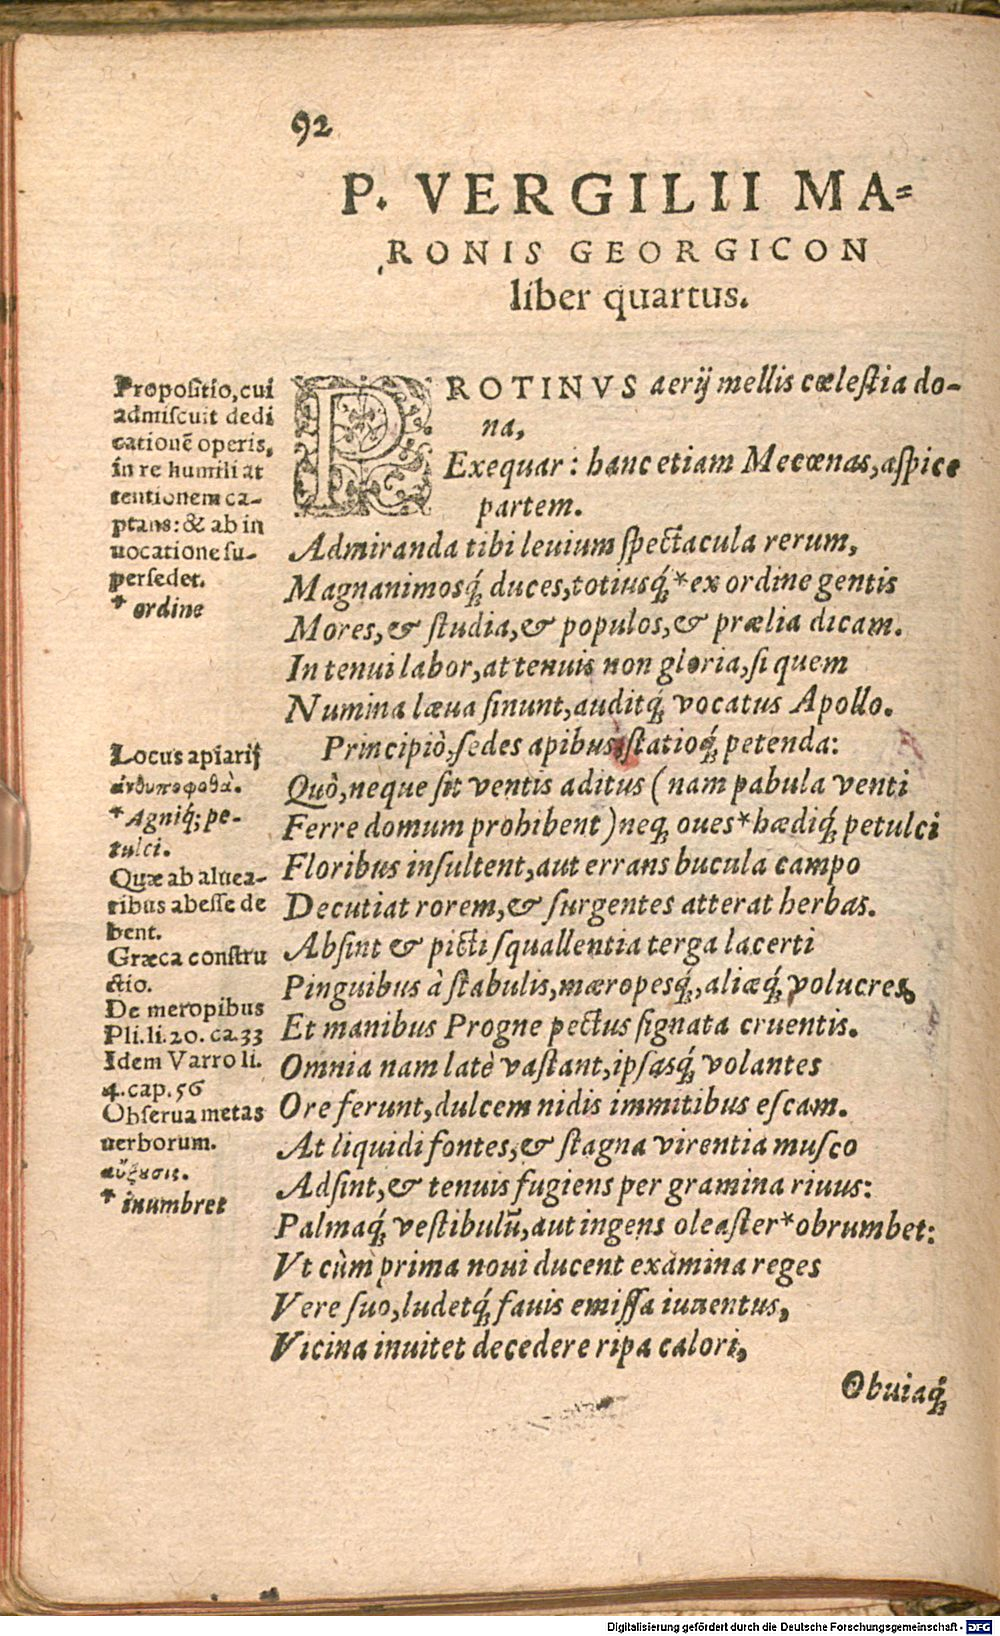 92
P. VERGILII MA=
RONIS GEORGICON
liber quartus.
PROTINVS aerij mellis cœlestia do-
na,
Exequar: hanc etiam Mecœnas, aspice
partem.
Admiranda tibi leuium spectacula rerum,
Magnanimosq́; duces, totiusq́; *ex ordine gentis
Mores, & studia, & populos, & prælia dicam.
In tenui labor, at tenuis non gloria, si quem
Numina læua sinunt, auditq́; vocatus Apollo.
Principiò, sedes apibus statioq́; petenda:
Quò, neque sit ventis aditus (nam pabula venti
Ferre domum prohibent) neq; oues *hædiq́; petulci
Floribus insultent, aut errans bucula campo
Decutiat rorem, & surgentes atterat herbas.
Absint & picti squallentia terga lacerti
Pinguibus à stabulis, mæropesq́;, aliæq́; volucres,
Et manibus Progne pectus signata cruentis.
Omnia nam latè vastant, ipsasq́; volantes
Ore ferunt, dulcem nidis immitibus escam.
At liquidi fontes, & stagna virentia musco
Adsint, & tenuis fugiens per gramina riuus:
Palmaq́; vestibulū, aut ingens oleaster *obrumbet:
Vt cùm prima noui ducent examina reges
Vere suo, ludetq́; fauis emissa iuuentus,
Vicina inuitet decedere ripa calori,
Obuiaq́;
Propositio, cui
admiscuit dedi
cationē operis,
in re humili at
tentionem ca-
ptans: & ab in
uocatione su-
persedet.
* ordine
Locus apiarij
ἀνθυποφοθὰ.
* Agniq́; pe-
tulci.
Quæ ab aluea-
ribus abesse de
bent.
Græca constru
ctio.
De meropibus
Pli. li. 20. ca. 33
Idem Varro li.
4. cap. 56
Obserua metas
uerborum.
αὔξησις.
* inumbret
Digitalisierung gefördert durch die Deutsche Forschungsgemeinschaft - DFG